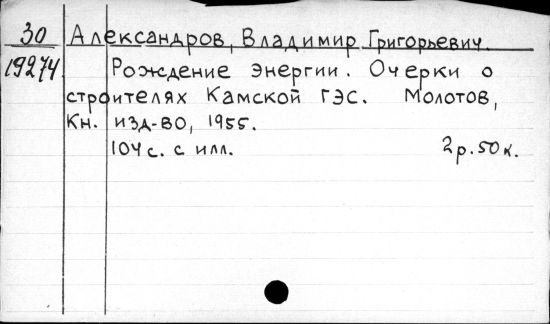 30 Александров, Владимир Григорьевич.
19274 Рождение энергии. Очерки о
строителях Камской ГЭС. Молотов,
Кн. изд-во, 1955.
104 с. с илл. 2 р. 50 к.